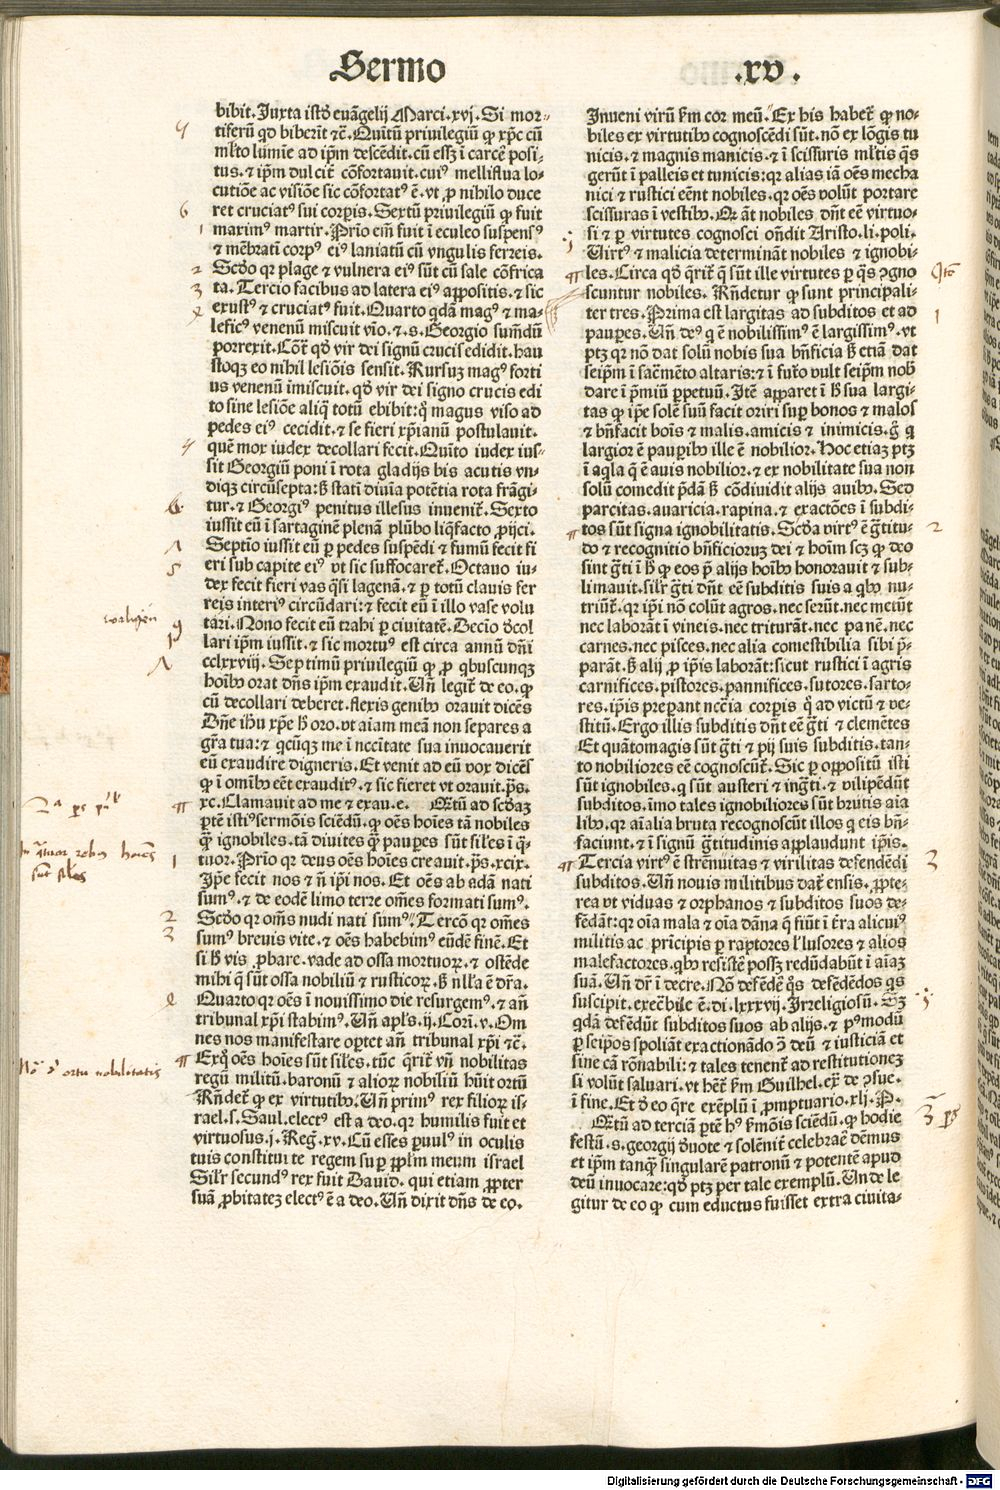 Sermo .xv.
bibit. Iuxta istđ euāgelij Marci. xvj. Si mor⸗
tiferū qđ biberīt ⁊c̄. Quītū priuilegiū ꝙ xp̄c cū
ml̓to lumīe ad ip̄m descēdit. cū esꝫ ī carcē posi⸗
tus. ⁊ ip̄m dulcit̄ cōfortauit. cuiꝰ melliflua lo⸗
cutiōe ac visiōe sic cōfortatꝰ ē. vt ꝓ nihilo duce
ret cruciatꝰ sui corꝑis. Sextū priuilegiū ꝙ fuit
maximꝰ martir. Prīo em̄ fuit ī eculeo suspensꝰ
⁊ mēbrati corpꝰ eiꝰ laniatū cū vngulis ferreis.
Scđo qꝛ plage ⁊ vulnera eiꝰ sūt cū sale cōfrica
ta. Tercio facibus ad latera eiꝰ appositis. ⁊ sic
exustꝰ ⁊ cruciatꝰ fuit. Quarto qđā magꝰ ⁊ ma⸗
leficꝰ venenū miscuit vīo. ⁊. s. Georgio sumēdū
porrexit. Cōt̄ qđ vir dei signū crucis edidit. hau
stoqꝫ eo nihil lesiōis sensit. Rursuꝫ magꝰ forti
us venenū imiscuit. qđ vir dei signo crucis edi
to sine lesiōe aliq̄ totū ebibit: qđ magus viso ad
pedes eiꝰ cecidit. ⁊ se fieri xp̄ianū postulauit.
quē mox iudex decollari fecit. Quīto iudex ius⸗
sit Georgiū poni ī rota gladijs bis acutis vn⸗
diqꝫ circūsepta: sꝫ statī diuīa potētia rota frāgi⸗
tur. ⁊ Georgiꝰ penitus illesus inuenit̄. Sexto
iussit eū ī sartaginē plenā plūbo liq̄facto ꝓijci.
Septīo iussit eū ꝑ pedes suspēdi ⁊ fumū fecit fi
eri sub capite eiꝰ vt sic suffocaret̄. Octauo iu⸗
dex fecit fieri vas q̄si lagenā. ⁊ ꝑ totū clauis fer
reis interiꝰ circūdari: ⁊ fecit eū ī illo vase volu
tari. Nono fecit eū trahi ꝑ ciuitatē. Decīo đcol
lari ip̄m iussit. ⁊ sic mortuꝰ est circa annū dn̄i
cclxxviij. Septimū priuilegiū ꝙ ꝓ qbuscunqꝫ
hoībꝰ orat dn̄s ip̄m exaudit. Un̄ legit̄ de eo. ꝙ
cū decollari deberet. flexis genibꝰ orauit dicēs
Dn̄e ih̄u xp̄e h̄ oro. vt aīam meā non separes a
gr̄a tua: ⁊ qcūqꝫ me ī nccītate sua inuocauerit
eū exaudire digneris. Et venit ad eū vox dicēs
ꝙ ī omībꝰ eēt exauditꝰ. ⁊ sic fieret vt orauit. p̄s.
xc. Clamauit ad me ⁊ exau. e. Qm̄tū ad scđaꝫ
ꝑtē istiꝰ sermōis sciēdū. ꝙ oēs hoīes tā nobiles
q̄ꝫ ignobiles. tā diuites q̄ꝫ pauꝑes sūt siles ī q̄⸗
tuor. Prīo qꝛ deus oēs hoīes creauit. p̄s. xcix.
Ip̄e fecit nos ⁊ n̄ ip̄i nos. Et oēs ab adā nati
sumꝰ. ⁊ de eodē limo terre om̄es formati sumꝰ.
Scđo qꝛ om̄s nudi nati sumꝰ. Tercō qꝛ om̄es
sumꝰ breuis vite. ⁊ oēs habebimꝰ eūdē finē. Et
si h̄ vis ꝓbare. vade ad ossa mortuoꝝ. ⁊ ostēde
mihi q̄ sūt ossa nobiliū ⁊ rusticoꝝ. sꝫ nl̄la ē dr̄a.
Quarto qꝛ oēs ī nouissimo die resurgemꝰ. ⁊ an̄
tribunal xp̄i stabimꝰ. Un̄ apl̄s. ij. Corī. v. Om
nes nos manifestare oportet an̄ tribunal xp̄i ⁊c̄.
Exq̄ oēs hoīes sūt siles. tūc q̄rit̄ vn̄ nobilitas
regū militū. baronū ⁊ alioꝝ nobiliū hūit ortū
Rn̄det̄ ꝙ ex virtutibꝰ. Un̄ primꝰ rex filioꝝ is⸗
rael. s. Saul. electꝰ est a deo. qꝛ humilis fuit et
virtuosus. j. Reḡ. xv. Cū esses ꝑuulꝰ in oculis
tuis constitui te regem suꝑ ppl̄m meum israel
Silr̄ secundꝰ rex fuit Dauid. qui etiam ꝓpter
suā ꝓbitateꝫ electꝰ ē a deo. Un̄ dixit dn̄s de eo.
Inueni virū km̄ cor meū. Ex his habet̄ ꝙ no⸗
biles ex virtutibꝰ cognoscēdi sūt. nō ex lōgis tu
nicis. ⁊ magnis manicis. ⁊ ī scissuris ml̓tis q̄s
gerūt ī palleis et tunicis: qꝛ alias iā oēs mecha
nici ⁊ rustici eēnt nobiles. qꝛ oēs volūt portare
scissuras ī vestibꝰ. Qꝛ āt nobiles dn̄t eē virtuo⸗
si ⁊ ꝑ virtutes cognosci on̄dit Aristo. li. poli.
Uirtꝰ ⁊ malicia determināt nobiles ⁊ ignobi⸗
les. Circa qđ q̄rit̄ q̄ sūt ille virtutes ꝑ q̄s ꝯgno
scuntur nobiles. Rn̄detur ꝙ sunt principali⸗
ter tres. Prima est largitas ad subditos et ad
pauꝑes. Un̄ deꝰ q̄ ē nobilissimꝰ ē largissimꝰ. vt
ptꝫ qꝛ nō dat solū nobis sua bn̄ficia sꝫ etiā dat
seip̄m ī sac̄mēto altaris: ⁊ ī fut̄o vult seip̄m nob̄
dare ī p̄miū ꝑpetuū. Itē apparet ī h̄ sua largi⸗
tas ꝙ ip̄e solē suū facit oriri suꝑ bonos ⁊ malos
⁊ bn̄facit boīs ⁊ malis. amicis ⁊ inimicis. g̊ q̄
largior ē pauꝑibꝰ ille ē nobilior. Hoc etiaꝫ ptꝫ
ī aq̄la q̄ ē auis nobilior. ⁊ ex nobilitate sua non
solū comedit p̄dā sꝫ cōdiuidit alijs auibꝰ. Sed
parcitas. auaricia. rapina. ⁊ exactōes ī subdi⸗
tos sūt signa ignobilitatis. Scđa virtꝰ ē ḡtitu⸗
do ⁊ recognitio bn̄ficioruꝫ dei ⁊ hoīm scꝫ ꝙ deo
sint ḡti ī h̄ ꝙ eos p̄ alijs hoībꝰ honorauit ⁊ sub⸗
limauit. silr̄ ḡti dn̄t eē subditis suis a qbꝰ nu⸗
triūt̄. qꝛ ip̄i nō colūt agros. nec serūt. nec metūt
nec laborāt ī vineis. nec triturāt. nec panē. nec
carnes. nec pisces. nec alia comestibilia sibi p̄⸗
parāt. sꝫ alij ꝓ ip̄is laborāt: sicut rustici ī agris
carnifices. pistores. pannifices. sutores. sarto⸗
res. ip̄is preparant nccīa corꝑis qđ ad victū ⁊ ve⸗
stitū. Ergo illis subditis dn̄t eē ḡti ⁊ clemētes
Et quātomagis sūt ḡti ⁊ pij suis subditis. tan⸗
to nobiliores eē cognoscūt̄. Sic ꝑ oppositū isti
sūt ignobiles. q̄ sūt austeri ⁊ inḡti. ⁊ vilipēdūt
subditos. imo tales ignobiliores sūt brutis aīa
libꝰ. qꝛ aīalia bruta recognoscūt illos q̄ eis bn̄⸗
faciunt. ⁊ ī signū ḡtitudinis applaudunt ip̄is.
Tercia virtꝰ ē strēnuitas ⁊ virilitas defendēdi
subditos. Un̄ nouis militibus dat̄ ensis. ꝓpte⸗
rea vt viduas ⁊ orphanos ⁊ subditos suos de⸗
fēdāt: qꝛ oīa mala ⁊ oīa dāna q̄ fiūt ī t̄ra alicuiꝰ
militis ac prīcipis ꝑ raptores l̓ lusores ⁊ alios
malefactores. qbꝰ resistē possꝫ redūdabūt ī aīaꝫ
suā. Un̄ dr̄ ī decre. Nō defēdē q̊s defēdēdos q̄s
suscipit. execr̄bile ē. di. lxxxvij. Irreligiosū. Sꝫ
qđā defēdūt subditos suos ab alijs. ⁊ pꝰmodū
ꝑ seip̄os spoliāt exactionādo ꝯ̄ deū ⁊ iusticiā et
sine cā rōnabili: ⁊ tales tenent̄ ad restitutioneꝫ
si volūt saluari. vt hēt̄ km̄ Guilhel. ex̄. de ꝯsue.
ī fine. Et đ eo q̄re exēplū ī ꝓmptuario. xlj. P.
Qm̄tū ad terciā ꝑtē hꝰ km̄ōis sciēdū. ꝙ hodie
festū. s. georgij đuote ⁊ solēnit̄ celebrae dēmus
et ip̄m tanq̄ꝫ singularē patronū ⁊ potentē apud
deū inuocare: qđ ptꝫ per tale exemplū. Un̄ de le
gitur de eo ꝙ cum eductus fuisset extra ciuita⸗
Digitalisierung gefördert durch die Deutsche Forschungsgemeinschaft - DFG